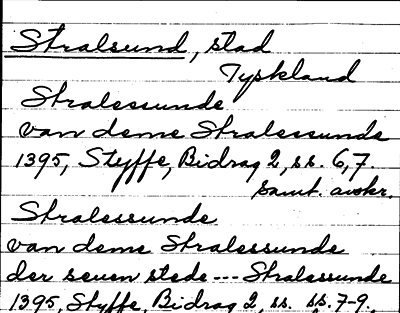 Stralsund, stad
Tyskland
Stralessunde
van deme Stralessunde
1395, Styffe, Bidrag 2, ss. 6, 7.
samt. avskr.
Stralessunde
van deme Stralessunde
der seuen stede --- Stralessunde
1395, Styffe, Bidrag 2, ss. ss. 7-9.